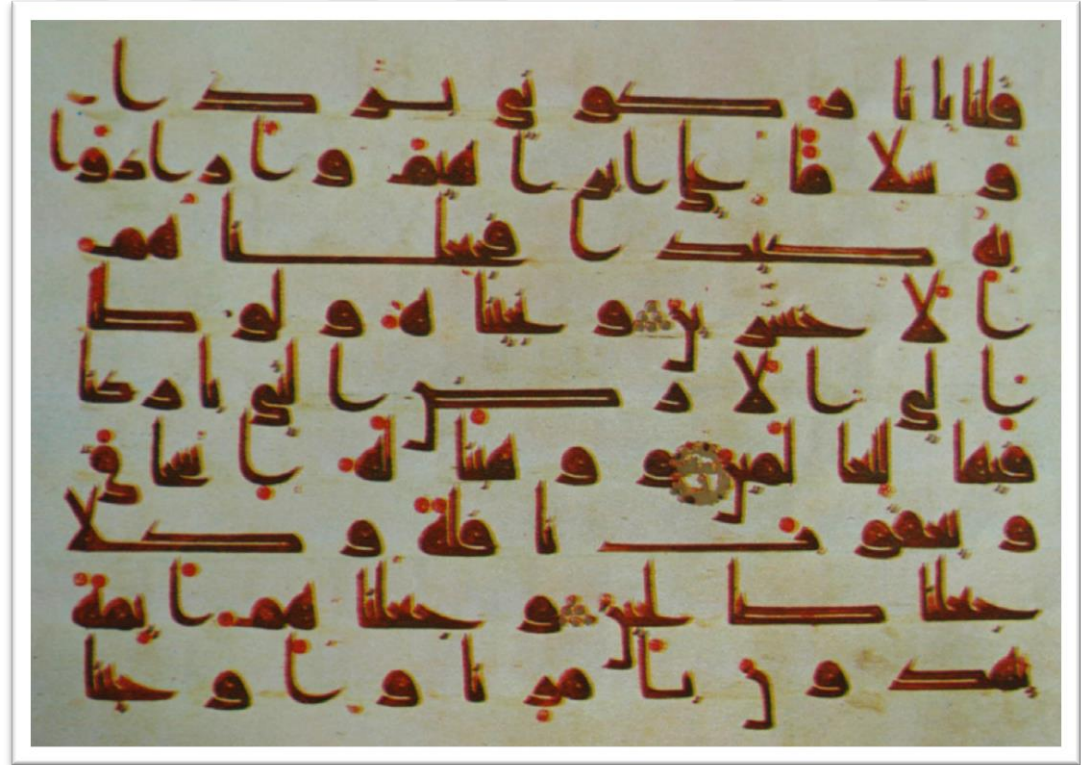 قلنا يا نار كوني بردا
و سلاما على ابراهيم و ارادوا
به كيدا فجعلناهم
الاخسرين و نجيناه و لوطا
الى الارض التي باركنا
فيها للعالمين و وهبنا له اسحاق
و يعقوب نافلة و كلا
جعلنا صالحين و جعلناهم ائمة
يهدون بامرنا و اوحينا